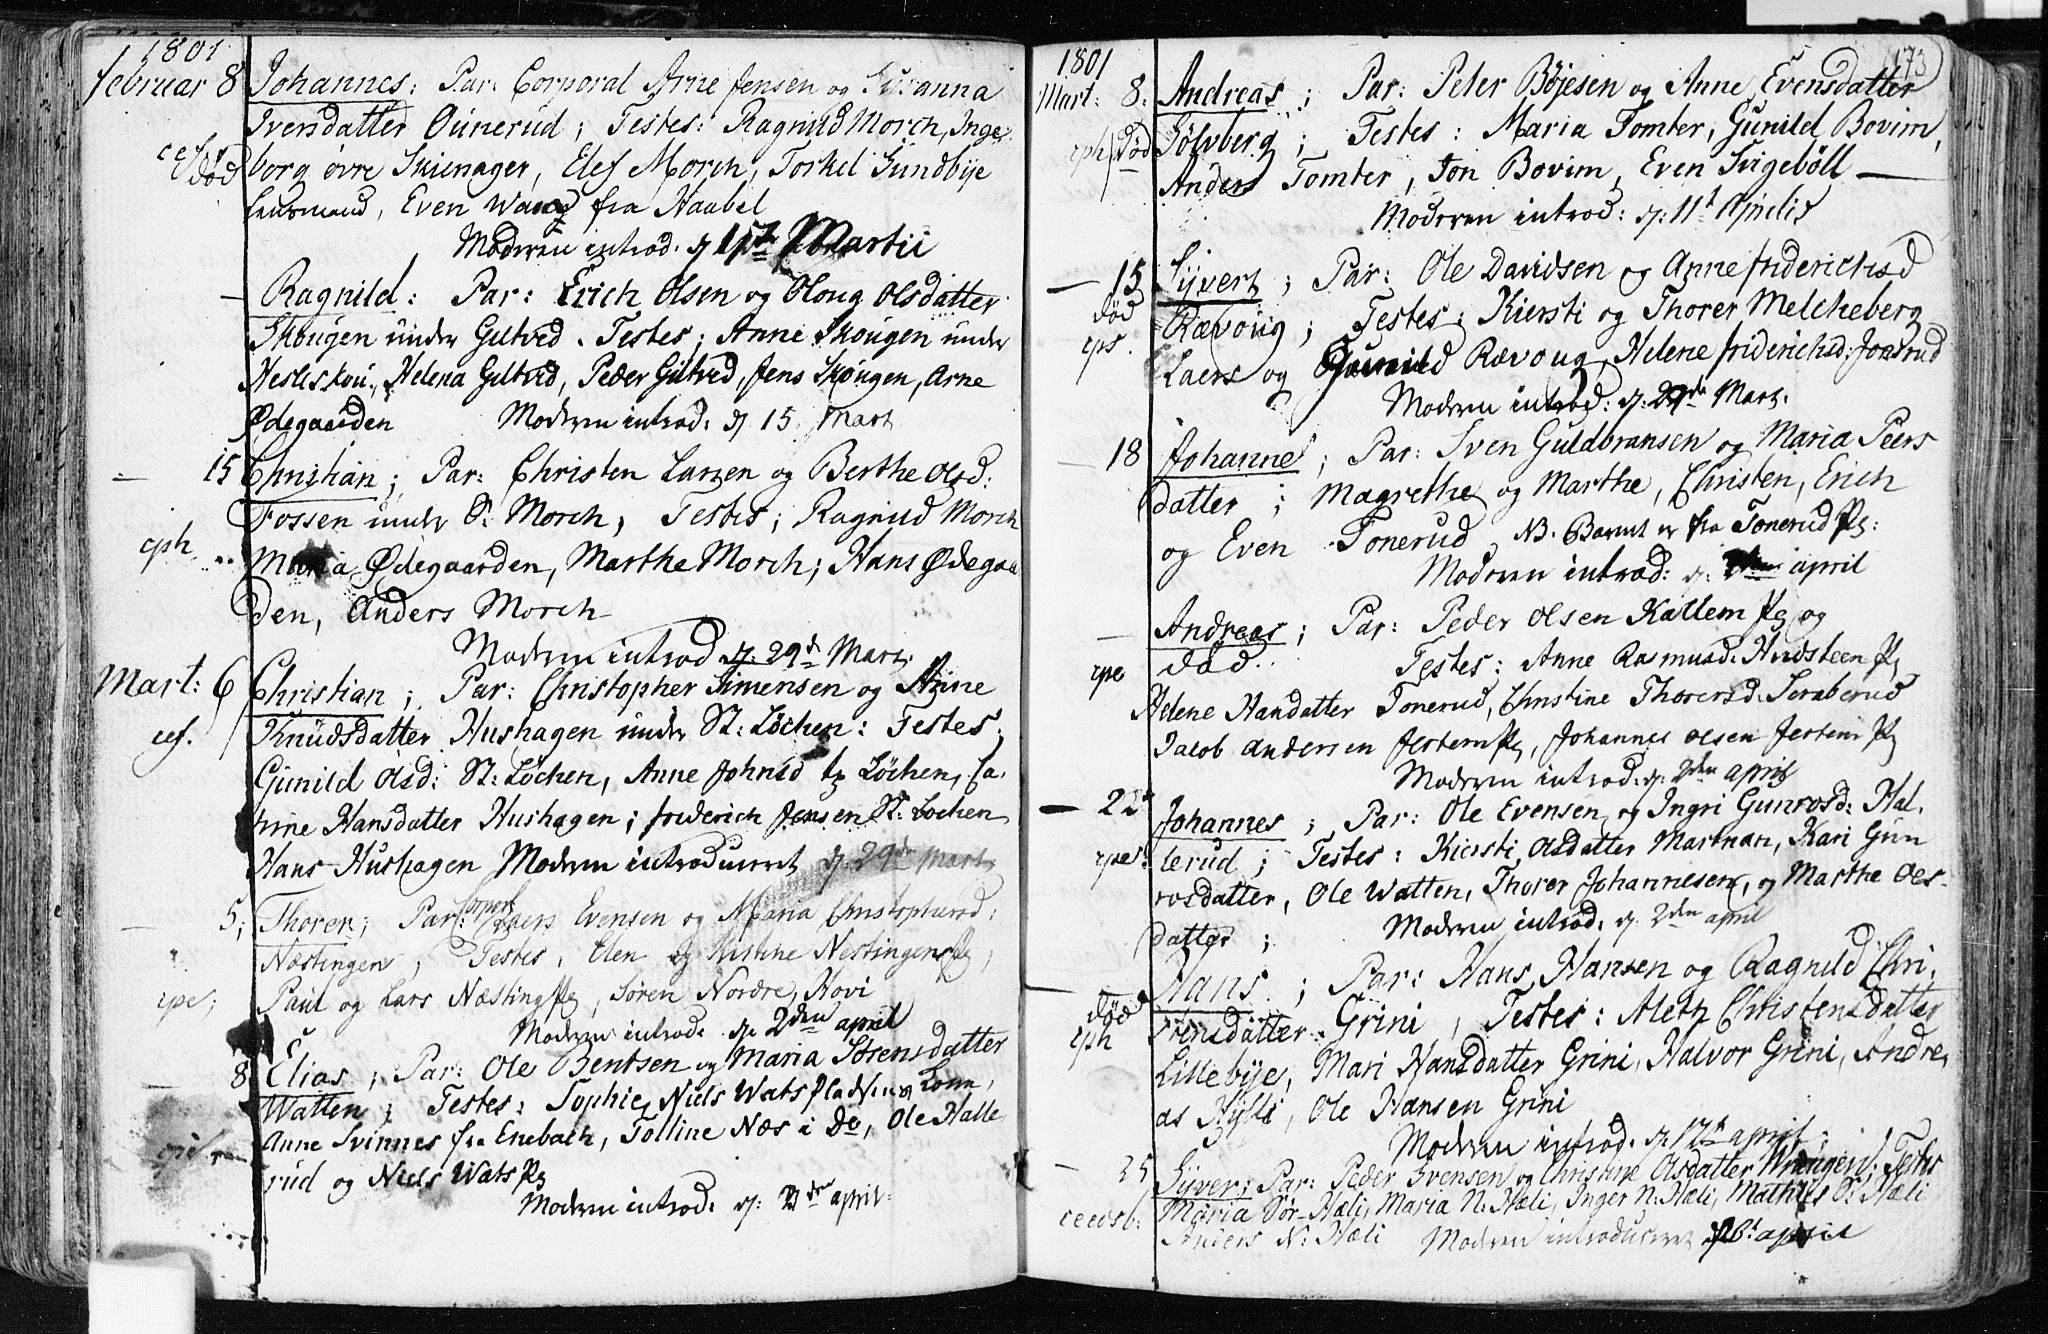 1801
Februar 8 Johannes: Par: Corporal Arne Jensen og Susanna
Iversdatter Ounerud; Testes: Ragnild Morch, Inge
død borg øvre Skienager, Elef Morch, Torkel Sundbÿe
Lensmand, Even Wang fra Haabel
Moderen introd. d. Martii
Ragnild: Par: Erich Olsen og Oloug Olsdatter
Skougen under Giltved. Testes; Anne Skougen under
Hesteskou, Helena Giltved, Peder Giltved, Jens Skougen, Arne
Ødegaarden Moderen introd: d 15 Mart
15 Christian; Par: Christen Larsen og Berthe Olsd:
Fossen under S. Morch, Testes; Ragnild Morch
cph Maria Ødegaarden, Marthe Morch; Hans Ødegaa
den, Anders Morch
Moderen introd d: 29d Mart:
Mart: 6 Christian; Par: Christopher Simensen og Anne
cef. Knudsdatter Hushagen under St: Løchen: Testes,
Gunild Olsd: St: Løchen, Anne Johnsd Løchen, Ca-
rine Hansdatter Hushagen; Friderich Jensen St: Lochen
Hans Hushagen Moderen introduceret d. 29de Mart
5; Thorer; Par: Corporl Laers Evensen og Maria Christophersd:
Næstingen, Testes, Elen og Kistine Nestingen Pg,
cpe; Paul og Lars Næsting Pg, Søren Nordre, Hovi
Moderen introd: d. 2den april
8 Elias; Par: Ole Bentsen og Maria Sørensdatter
Watten; Testes: Sophie, Niels Wats Pladsen og Kone,
Anne Svinnes fra Enebach, Tolline Næs i Do, Ole Halle
rud og Niels Wats Pg
Moderen introd: d: 2den april.
173
1801
Mart: 8. Andreas; Par: Peter Bøjesen og Anne Evensdatter
cph død Sølvberg; Testes: Maria Tomter, Gunild Bovim,
Anders Tomter, Jon Bovim, Even Svigebøll
Moderen introd: d: 11t Aprilis
15 Sÿvert; Par: Ole Davidsen og Anne Friderichsd
død Rævoug; Testes: Kiersti og Thorer Melcheberg
cps. Laers og Gunild Rævoug, Helene Friderichsd: Jonsrud
Moderen introd: d: 29de Mart.
18 Johanne; Par: Sven Guldbransen og Maria Peers
datter; Magrethe og Marthe, Christen, Erich
og Even Tonerud NB. Barnet er fra Tonerud Pg:
Moderen introd: d: april
Andreas; Par: Peder Olsen Kattem Pg og
cpe død Testes: Anne Rasmusd: Hvidsteen Pg
Helene Handatter Tonerud, Christine Thorersd: Seraberud
Jacob Andersen Jestem Pg, Johannes Olsen Jestem Pg
Moderen introd: d: 2den april
22 Johannes; Par: Ole Evensen og Ingri Gunrosd: Hal-
cpe: lerud; Testes: Kiersti Olsdatter Martnan, Kari Gun
rosdatter, Ole Watten, Thorer Johannesen, og Marthe Oes-
datter; Moderen introd: d. 2den april
Hans; Par: Hans Hansen og Ragnild Chri-
død stensdatter Grini, Testes: Aleth Christensdatter
cph Lillebÿe, Mari Hansdatter Grini, Halvor Grini, Andre,
as Hÿlli, Ole Hansen Grini
Moderen introd. d. 12t april;
25 Sÿver; Par: Peder Svensen og Christine Olsdatter Wrangen: Testes
Maria Sør-Hæli, Maria N: Hæli, Inger N: Hæli, Mathies S: Hæli
Anders N: Hæli Moderen introduceret april